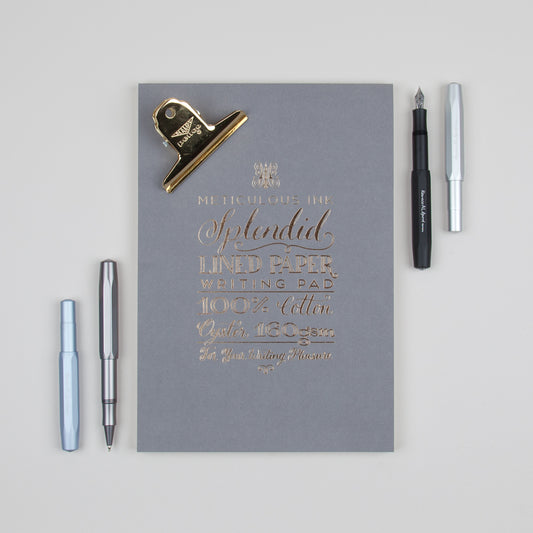 METICULOUS INK
Splendid
LINED PAPER
WRITING PAD
100% Cotton
Oyster, 160gsm
For Your Writing Pleasure
Kaweco AL Sport